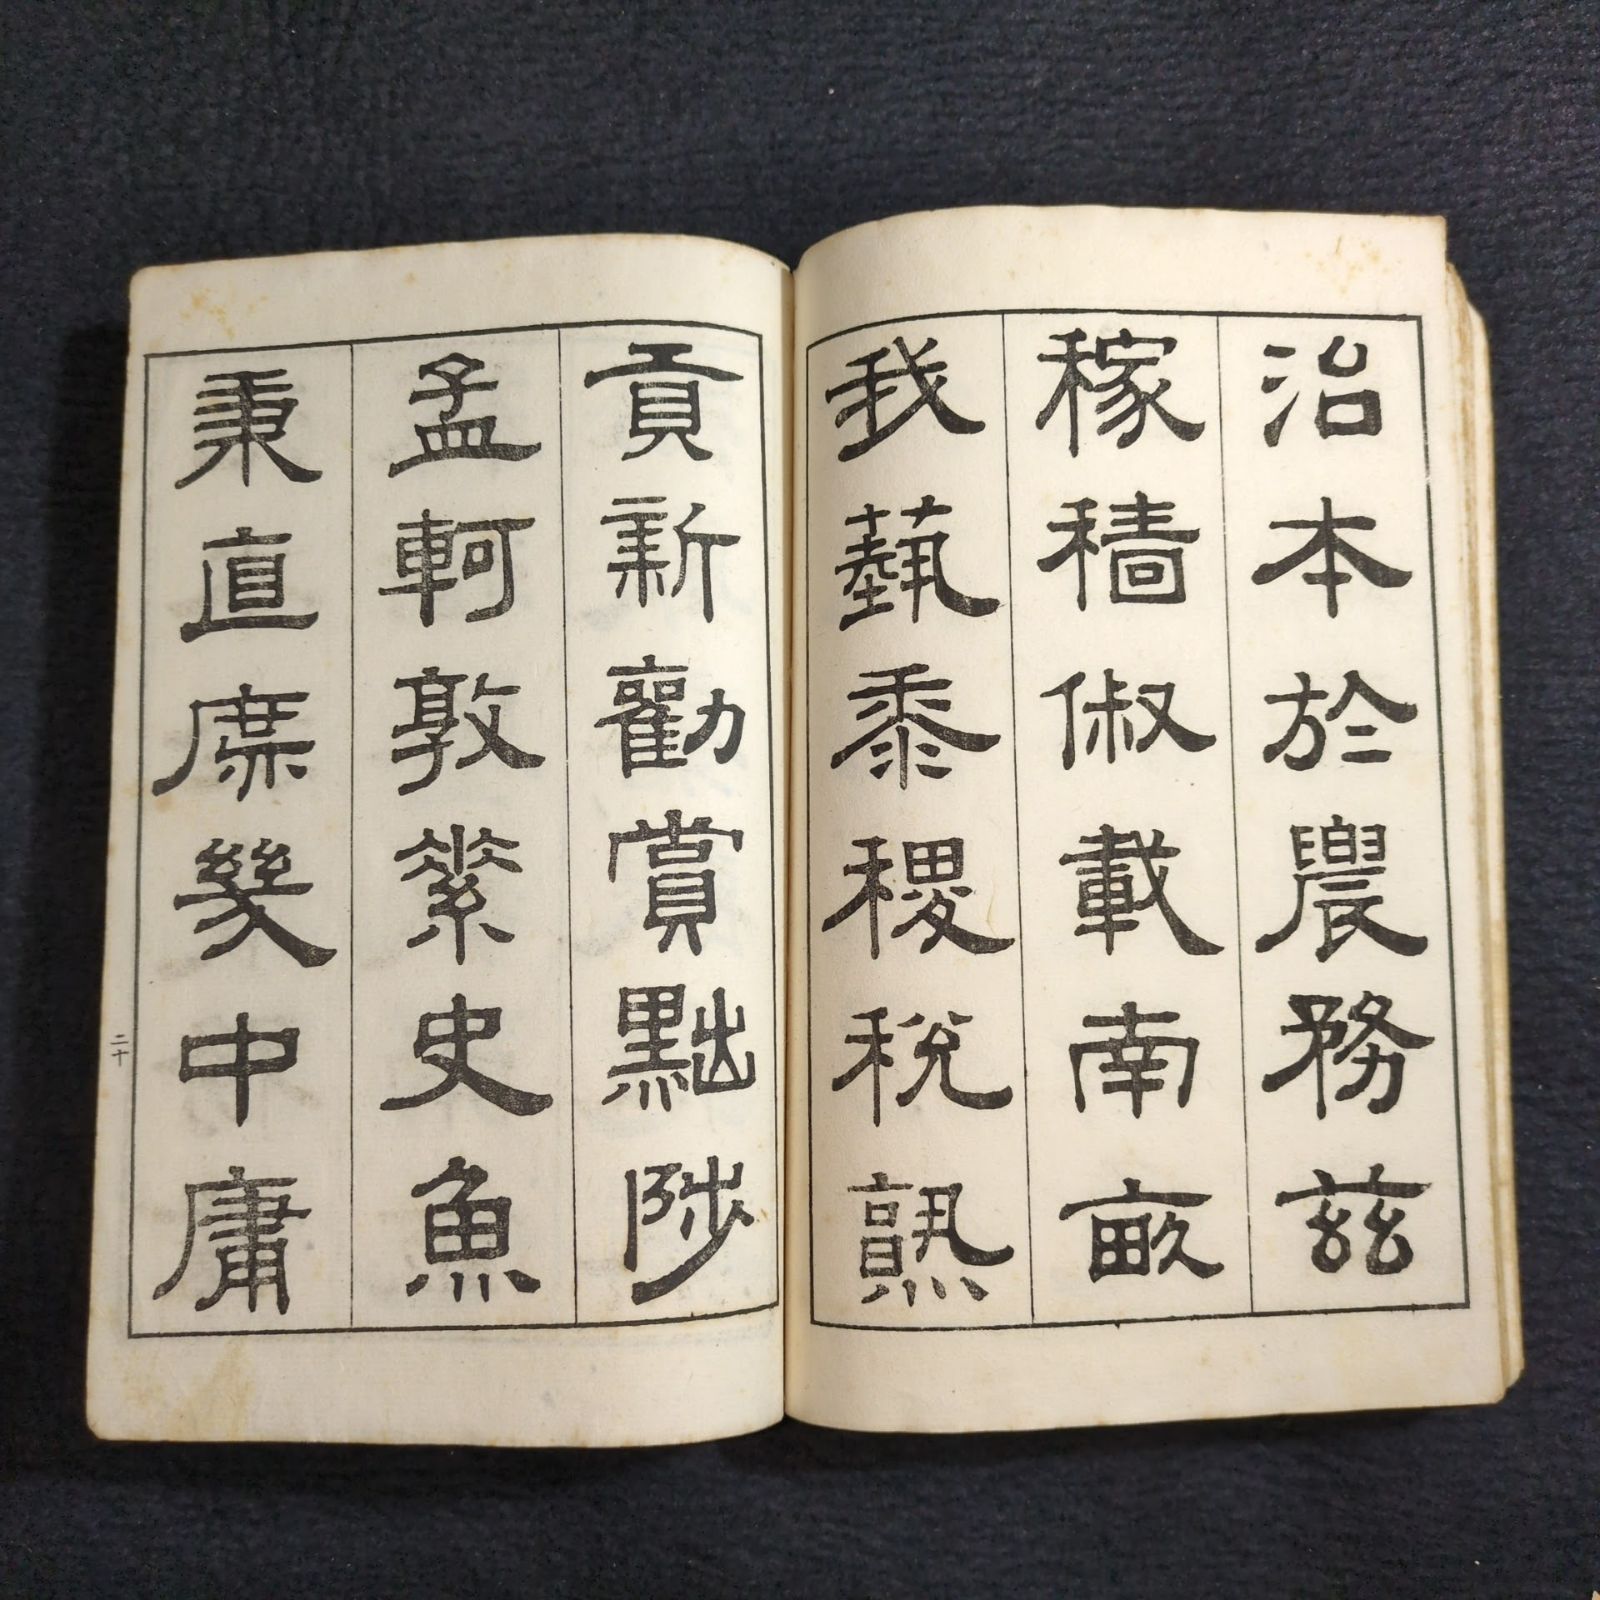 治本於農務茲
稼穡俶載南畝
我藝黍稷稅熟
貢新勸賞黜陟
孟軻敦素史魚
秉直庶幾中庸
二十